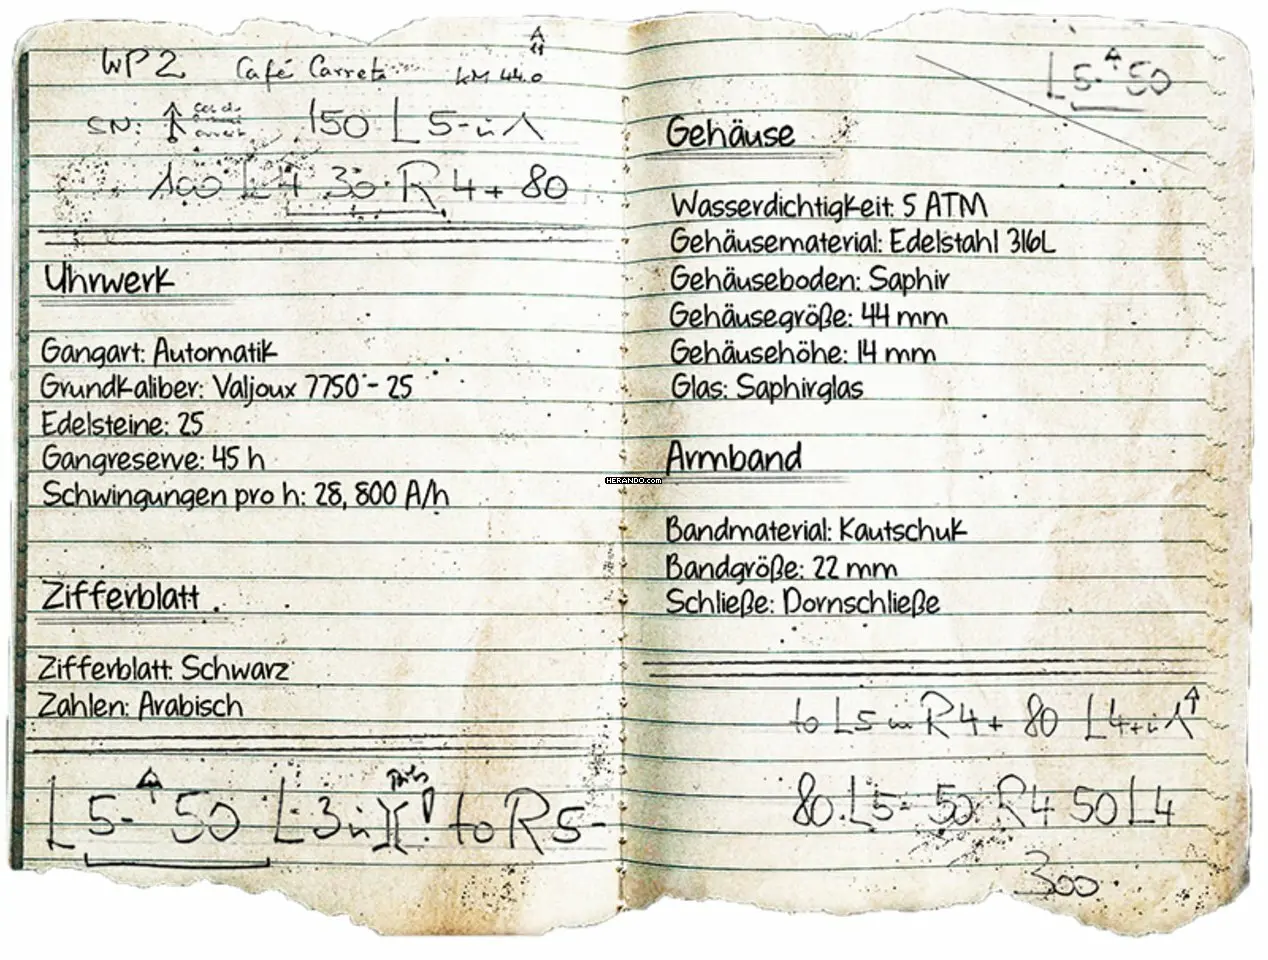 WP2 Café Carreta KM 44.0
SN: 150 L 5- in
100 L4 30 R 4+ 80
Uhrwerk
Gangart: Automatik
Grundkaliber: Valjoux 7750 - 25
Edelsteine: 25
Gangreserve: 45 h
Schwingungen pro h: 28, 800 A/h
Zifferblatt
Zifferblatt: Schwarz
Zahlen: Arabisch
L 5- 50 L3 in ! to R 5-
L 5- 50
Gehäuse
Wasserdichtigkeit: 5 ATM
Gehäusematerial: Edelstahl 316L
Gehäuseboden: Saphir
Gehäusegröße: 44 mm
Gehäusehöhe: 14 mm
Glas: Saphirglas
HERANDO.com
Armband
Bandmaterial: Kautschuk
Bandgröße: 22 mm
Schließe: Dornschließe
to L5 in R4+ 80 L4+ in
80 L5- 50 R4 50 L4
300